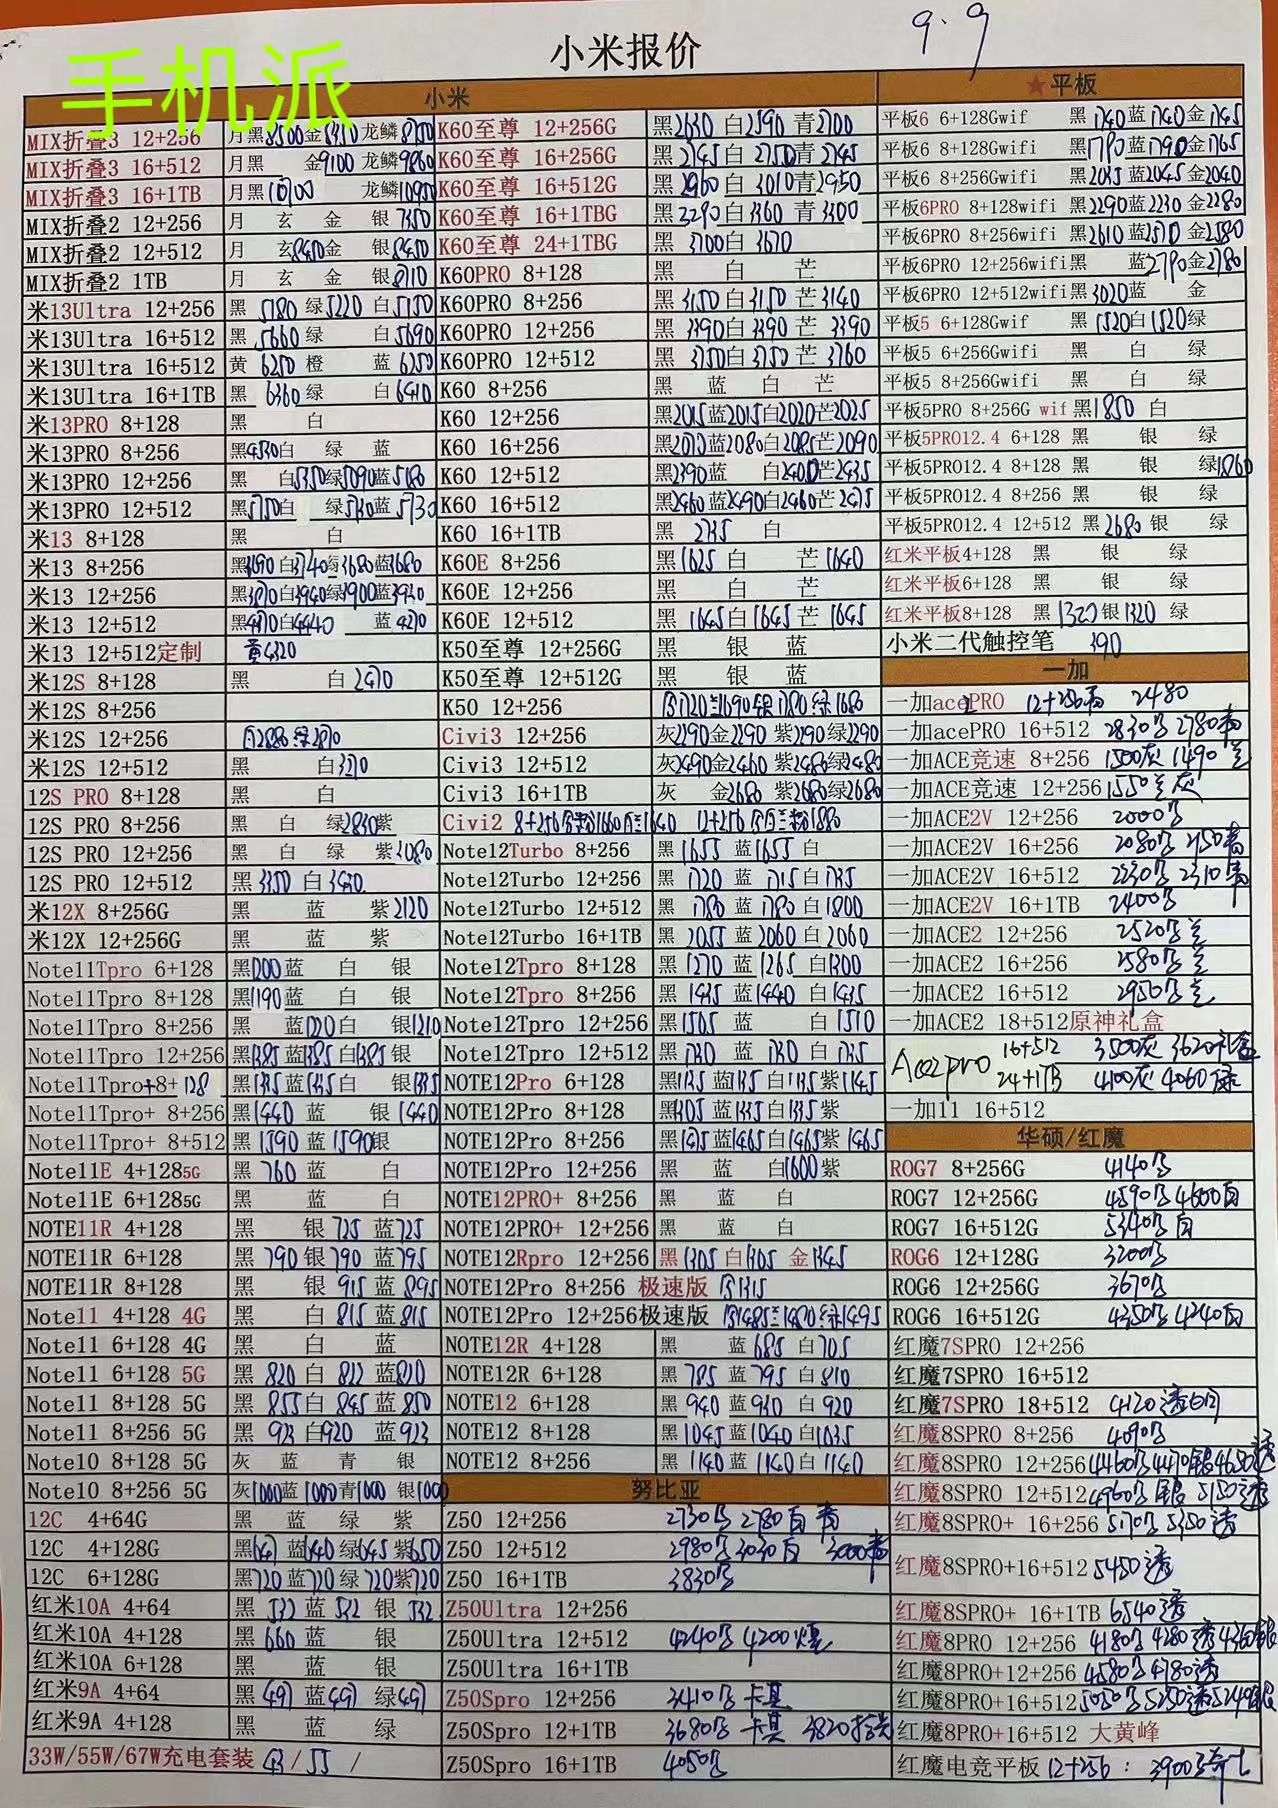 9.9
手机派
小米报价
小米
MIX折叠3 12+256 月黑8500金8350龙鳞8750
MIX折叠3 16+512 月黑 金9100 龙鳞9860
MIX折叠3 16+1TB 月黑10700 龙鳞10950
MIX折叠2 12+256 月 玄 金 银7350
MIX折叠2 12+512 月 玄8450金 银8450
MIX折叠2 1TB 月 玄 金 银8710
米13Ultra 12+256 黑 5180 绿5220 白5150
米13Ultra 16+512 黑 5660 绿 白5690
米13Ultra 16+512 黄 6250 橙 蓝 6250
米13Ultra 16+1TB 黑 6360 绿 白6410
米13PRO 8+128 黑 白
米13PRO 8+256 黑4530白 绿 蓝
米13PRO 12+256 黑 白5350绿5090蓝5180
米13PRO 12+512 黑5750白 绿 蓝5730
米13 8+128 黑 白
米13 8+256 黑3690白3740绿3680蓝3680
米13 12+256
米13 12+512 白4440 蓝4270
米13 12+512定制 黄4320
米12S 8+128 黑 白2470
米12S 8+256
米12S 12+256
米12S 12+512 黑 白3270
12S PRO 8+128 黑 白
12S PRO 8+256 黑 白 绿2830紫
12S PRO 12+256 黑 白 绿 紫3080
12S PRO 12+512 黑3350 白3430
米12X 8+256G 黑 蓝 紫2120
米12X 12+256G 黑 蓝 紫
Note11Tpro 6+128 黑1200蓝 白 银
Note11Tpro 8+128 黑1190蓝 白 银
Note11Tpro 8+256 黑 蓝1220白 银1210
Note11Tpro 12+256 黑1385蓝1385白1385银
Note11Tpro+8+128 黑1335蓝1335白 银1335
Note11Tpro+ 8+256 黑1440 蓝 银1440
Note11Tpro+ 8+512 黑1590 蓝1590银
Note11E 4+1285G 黑 760 蓝 白
Note11E 6+1285G 黑 蓝 白
NOTE11R 4+128 黑 银725 蓝725
NOTE11R 6+128 黑 790 银790 蓝795
NOTE11R 8+128 黑 银 915 蓝895
Note11 4+128 4G 黑 白 815 蓝815
Note11 6+128 4G 黑 白 蓝
Note11 6+128 5G 黑 820 白 822 蓝820
Note11 8+128 5G 黑 855白 845 蓝850
Note11 8+256 5G 黑 923 白920 蓝923
Note10 8+128 5G 灰 蓝 青 银
Note10 8+256 5G 灰1000蓝1000青1000 银1000
12C 4+64G 黑 蓝 绿 紫
12C 4+128G 黑647 蓝640 绿645 紫650
12C 6+128G 黑720蓝720绿720紫720
红米10A 4+64 黑 532 蓝 532 银 532
红米10A 4+128 黑 660 蓝 银
红米10A 6+128 黑 蓝 银
红米9A 4+64 黑 497 蓝497 绿497
红米9A 4+128 黑 蓝 绿
33W/55W/67W充电套装 43/55 /
K60至尊 12+256G 黑2630 白2590 青2700
K60至尊 16+256G 黑2745白 2750青2745
K60至尊 16+512G 黑2960白 3010青2950
K60至尊 16+1TBG 黑3290白3360 青3300
K60至尊 24+1TBG 黑 3700白 3670
K60PRO 8+128 黑 白 芒
K60PRO 8+256 黑3150白3150 芒3140
K60PRO 12+256 黑3390白3390 芒3390
K60PRO 12+512 黑3750白3750 芒3760
K60 8+256 黑 蓝 白 芒
K60 12+256 黑2015蓝2015白2020芒2025
K60 16+256 黑2070蓝2080白2085芒2090
K60 12+512 黑2390蓝 白2400芒2435
K60 16+512 黑2460蓝2490白2460芒2475
K60 16+1TB 黑 2735 白
K60E 8+256 黑1625白 芒1640
K60E 12+256 黑 白 芒
K60E 12+512 黑1645白1645 芒1645
K50至尊 12+256G 黑 银 蓝
K50至尊 12+512G 黑 银 蓝
K50 12+256
Civi3 12+256 灰2290金2290 紫2290绿2290
Civi3 12+512 灰2490金2460 紫2480绿2480
Civi3 16+1TB 灰 金2680 紫2680绿2680
Civi2
Note12Turbo 8+256 黑1655 蓝1655 白
Note12Turbo 12+256 黑1720 蓝1715白1735
Note12Turbo 12+512 黑1780 蓝1780白1800
Note12Turbo 16+1TB 黑 2055 蓝2060 白2060
Note12Tpro 8+128 黑1270 蓝1265 白1300
Note12Tpro 8+256 黑1435 蓝1440 白1435
Note12Tpro 12+256 黑1505 蓝 白1510
Note12Tpro 12+512 黑1730 蓝1730白1735
NOTE12Pro 6+128 黑1135蓝1135白1135紫1145
NOTE12Pro 8+128 黑1305 蓝1335白1335紫
NOTE12Pro 8+256 黑1475蓝1465白1465紫1465
NOTE12Pro 12+256 黑 蓝 白1600紫
NOTE12PRO+ 8+256 黑 蓝 白
NOTE12PRO+ 12+256 黑 蓝 白
NOTE12Rpro 12+256 黑1305 白1305 金1345
NOTE12Pro 8+256 极速版
NOTE12Pro 12+256极速版
NOTE12R 4+128 黑 蓝 685 白705
NOTE12R 6+128 黑 785 蓝795 白810
NOTE12 6+128 黑 940 蓝910 白 920
NOTE12 8+128 黑1045 蓝1040 白1035
NOTE12 8+256 黑1140 蓝1140白1140
努比亚
Z50 12+256 2730 2780白 青
Z50 12+512 2980 3030白 3000青
Z50 16+1TB 3830
Z50Ultra 12+256
Z50Ultra 12+512 4240 4200
Z50Ultra 16+1TB
Z50Spro 12+256 3410 卡其
Z50Spro 12+1TB 3680 卡其 3820
Z50Spro 16+1TB 4050
★平板
平板6 6+128Gwif 黑1740蓝1740金1745
平板6 8+128Gwifi 黑1790蓝1790金1765
平板6 8+256Gwifi 黑2035蓝2045金2040
平板6PRO 8+128wifi 黑2290蓝2230 金2280
平板6PRO 8+256wifi 黑2610蓝2570 金2580
平板6PRO 12+256wifi黑 蓝2790金2780
平板6PRO 12+512wifi黑3020蓝 金
平板5 6+128Gwif 黑1520白1520绿
平板5 6+256Gwifi 黑 白 绿
平板5 8+256Gwifi 黑 白 绿
平板5PRO 8+256G wif 黑1850 白
平板5PRO12.4 6+128 黑 银 绿
平板5PRO12.4 8+128 黑 银 绿1860
平板5PRO12.4 8+256 黑 银 绿
平板5PRO12.4 12+512 黑2680 银 绿
红米平板4+128 黑 银 绿
红米平板6+128 黑 银 绿
红米平板8+128 黑1320银1320 绿
小米二代触控笔 390
一加
一加acePRO 12+256 2480
一加acePRO 16+512 2830 2780
一加ACE竞速 8+256 1500灰 1490
一加ACE竞速 12+256 1550
一加ACE2V 12+256 2000
一加ACE2V 16+256 2080 2150
一加ACE2V 16+512 2230 2310
一加ACE2V 16+1TB 2400
一加ACE2 12+256 2520
一加ACE2 16+256 2580
一加ACE2 16+512 2950
一加ACE2 18+512原神礼盒
Ace2pro 16+512 3500灰 3620礼盒
24+1TB 4100灰 4060绿
一加11 16+512
华硕/红魔
ROG7 8+256G 4140
ROG7 12+256G 4590 4600白
ROG7 16+512G 5340 白
ROG6 12+128G 3200
ROG6 12+256G 3670
ROG6 16+512G 4350 4240白
红魔7SPRO 12+256
红魔7SPRO 16+512
红魔7SPRO 18+512 4120透
红魔8SPRO 8+256 4090
红魔8SPRO 12+256 4460 4470银4650透
红魔8SPRO 12+512 4960 银 5150透
红魔8SPRO+ 16+256 5170 5350透
红魔8SPRO+16+512 5450透
红魔8SPRO+ 16+1TB 6540透
红魔8PRO 12+256 4180 4280透4360银
红魔8PRO+12+256 4580 4780透
红魔8PRO+16+512 5050 5250透5249银
红魔8PRO+16+512 大黄峰
红魔电竞平板 12+256: 3900